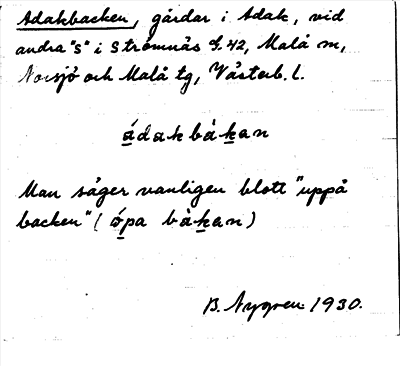 Adakbacken, gårdar i Adak, vid
andra "s" i Strömnäs S. 42, Malå m,
Norsjö och Malå tg, Västerb. l.
ádakbàkan
Man säger vanligen blott "uppå
backen" (ópa bàkan)
B. Nygren 1930.